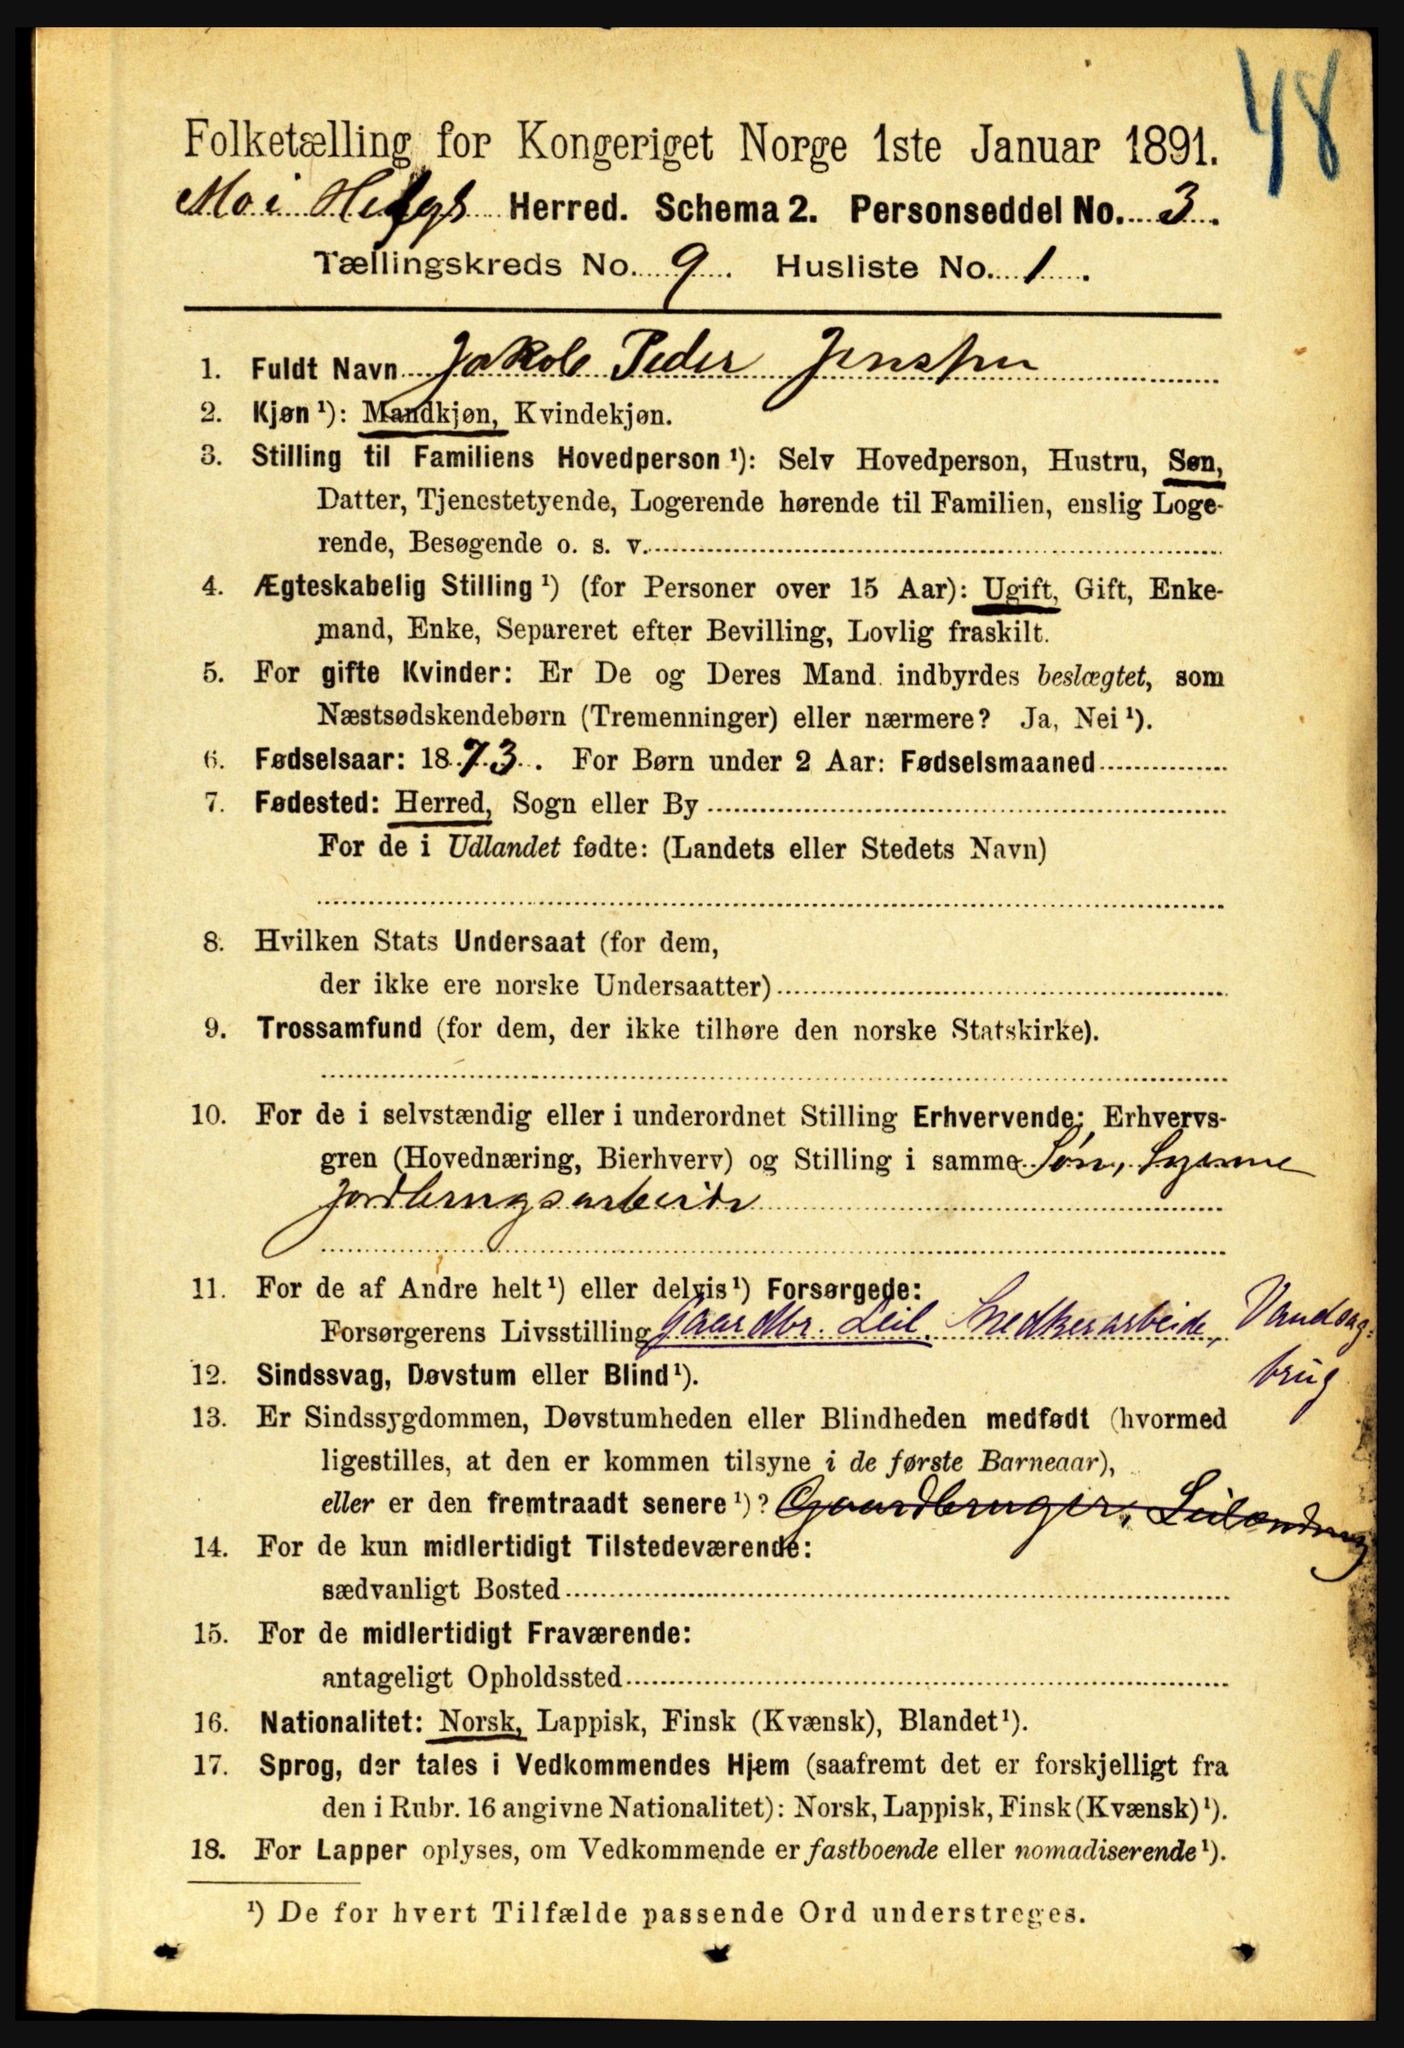 48
Folketælling for Kongeriget Norge 1ste Januar 1891.
Mo i Helgs Herred. Schema 2. Personseddel No. 3.
Tællingskreds No. 9. Husliste No. 1.
1. Fuldt Navn Jakob Peder Jensen
2. Kjøn ¹): Mandkjøn, Kvindekjøn.
3. Stilling til Familiens Hovedperson ¹): Selv Hovedperson, Hustru, Søn,
Datter, Tjenestetyende, Logerende hørende til Familien, enslig Loge-
rende, Besøgende o. s. v.
4. Ægteskabelig Stilling ¹) (for Personer over 15 Aar): Ugift, Gift, Enke-
mand, Enke, Separeret efter Bevilling, Lovlig fraskilt.
5. For gifte Kvinder: Er De og Deres Mand indbyrdes beslægtet, som
Næstsødskendebørn (Tremenninger) eller nærmere? Ja, Nei ¹).
6. Fødselsaar: 1873. For Børn under 2 Aar: Fødselsmaaned
7. Fødested: Herred, Sogn eller By
For de i Udlandet fødte: (Landets eller Stedets Navn)
8. Hvilken Stats Undersaat (for dem,
der ikke ere norske Undersaatter)
9. Trossamfund (for dem, der ikke tilhøre den norske Statskirke).
10. For de i selvstændig eller i underordnet Stilling Erhvervende: Erhvervs-
gren (Hovednæring, Bierhverv) og Stilling i samme Søn,
Jordbrugsarbeide
11. For de af Andre helt ¹) eller delvis ¹) Forsørgede:
Forsørgerens Livsstilling Gaardbr. Leil. Snedkerarbeide, Vandsag-
brug
12. Sindssvag, Døvstum eller Blind ¹).
13. Er Sindssygdommen, Døvstumheden eller Blindheden medfødt (hvormed
ligestilles, at den er kommen tilsyne i de første Barneaar),
eller er den fremtraadt senere ¹)? Gaardbruger, Leilænding
14. For de kun midlertidigt Tilstedeværende:
sædvanligt Bosted
15. For de midlertidigt Fraværende:
antageligt Opholdssted
16. Nationalitet: Norsk, Lappisk, Finsk (Kvænsk), Blandet ¹).
17. Sprog, der tales i Vedkommendes Hjem (saafremt det er forskjelligt fra
den i Rubr. 16 angivne Nationalitet): Norsk, Lappisk, Finsk (Kvænsk) ¹).
18. For Lapper oplyses, om Vedkommende er fastboende eller nomadiserende ¹).
¹) De for hvert Tilfælde passende Ord understreges.